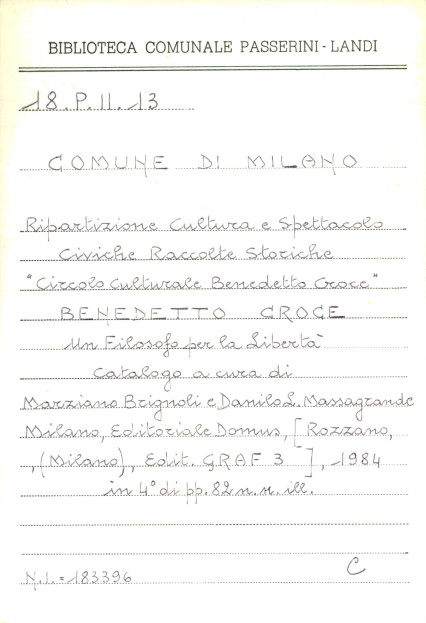 BIBLIOTECA COMUNALE PASSERINI - LANDI
18. P. II. 13
COMUNE DI MILANO
Ripartizione Cultura e Spettacolo
Civiche Raccolte Storiche
"Circolo Culturale Benedetto Croce"
BENEDETTO CROCE
Un Filosofo per la Libertà
Catalogo a cura di
Marziano Brignoli e Danilo L. Massagrande
Milano, Editoriale Domus, [Rozzano,
, (Milano), Edit. GRAF 3 ], 1984
in 4° di pp. 82 n. n. ill.
N.I. = 183396
C